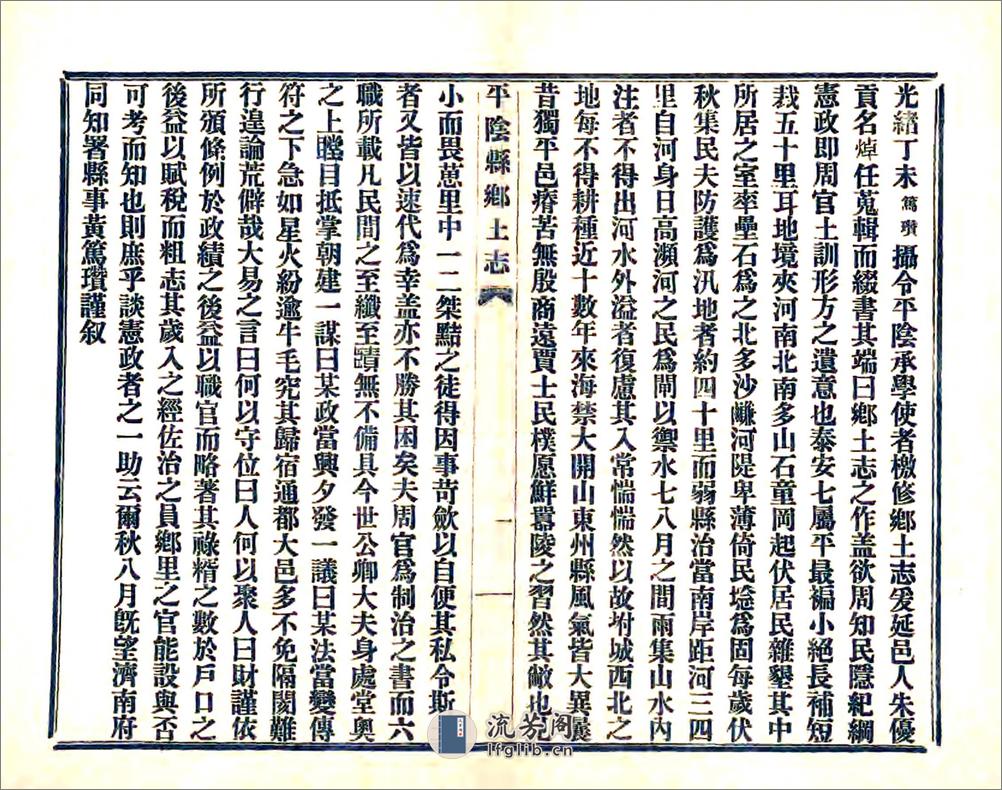 光緒丁未篤瓚攝令平陰承學使者檄修鄉土志爰延邑人朱優
貢名焯任蒐輯而綴書其端曰鄉土志之作盖欲周知民隱紀綱
憲政即周官土訓形方之遺意也泰安七屬平最褊小絕長補短
裁五十里耳地境夾河南北南多山石童岡起伏居民雜墾其中
所居之室率壘石爲之北多沙鹻河隄卑薄倚民埝爲固每歲伏
秋集民夫防護爲汛地者約四十里而弱縣治當南岸距河三四
里自河身日高瀕河之民爲閘以禦水七八月之間雨集山水內
注者不得出河水外溢者復慮其入常惴惴然以故坿城西北之
地每不得耕種近十數年來海禁大開山東州縣風氣皆大異曩
昔獨平邑瘠苦無殷商遠賈士民樸愿鮮囂陵之習然其敝也邑
平陰縣鄉土志
一
小而畏葸里中一二桀黠之徒得因事苛斂以自便其私令斯
者又皆以速代爲幸盖亦不勝其困矣夫周官爲制治之書而六
職所載凡民間之至纖至賾無不備具今世公卿大夫身處堂奧
之上瞠目抵掌朝建一謀曰某政當興夕發一議曰某法當變傳
符之下急如星火紛逾牛毛究其歸宿通都大邑多不免隔閡難
行遑論荒僻哉大易之言曰何以守位曰人何以聚人曰財謹依
所頒條例於政績之後益以職官而略著其祿糈之數於戶口之
後益以賦稅而粗志其歲入之經佐治之員鄉里之官能設與否
可考而知也則庶乎談憲政者之一助云爾秋八月旣望濟南府
同知署縣事黃篤瓚謹叙
流芳阁
lfglib.cn